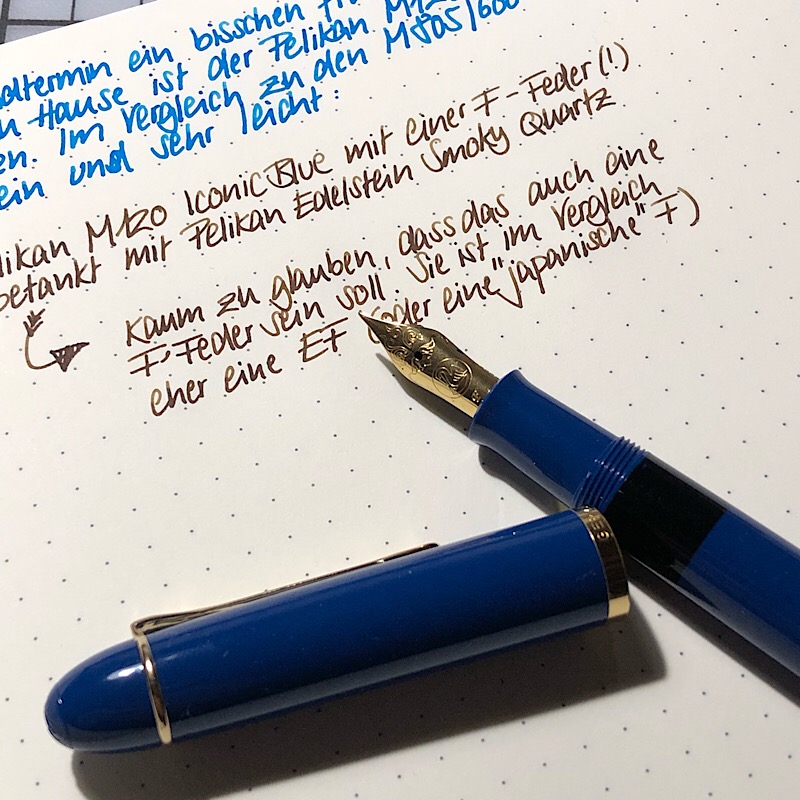 ein bisschen
Hause ist der Pelikan M120
Im Vergleich zu den M805/600
und sehr leicht:
Pelikan M120 Iconic Blue mit einer F-Feder (!)
betankt mit Pelikan Edelstein Smoky Quartz
Kaum zu glauben, dass das auch eine
F-Feder sein soll. Sie ist im Vergleich
eher eine EF (oder eine "japanische" F)